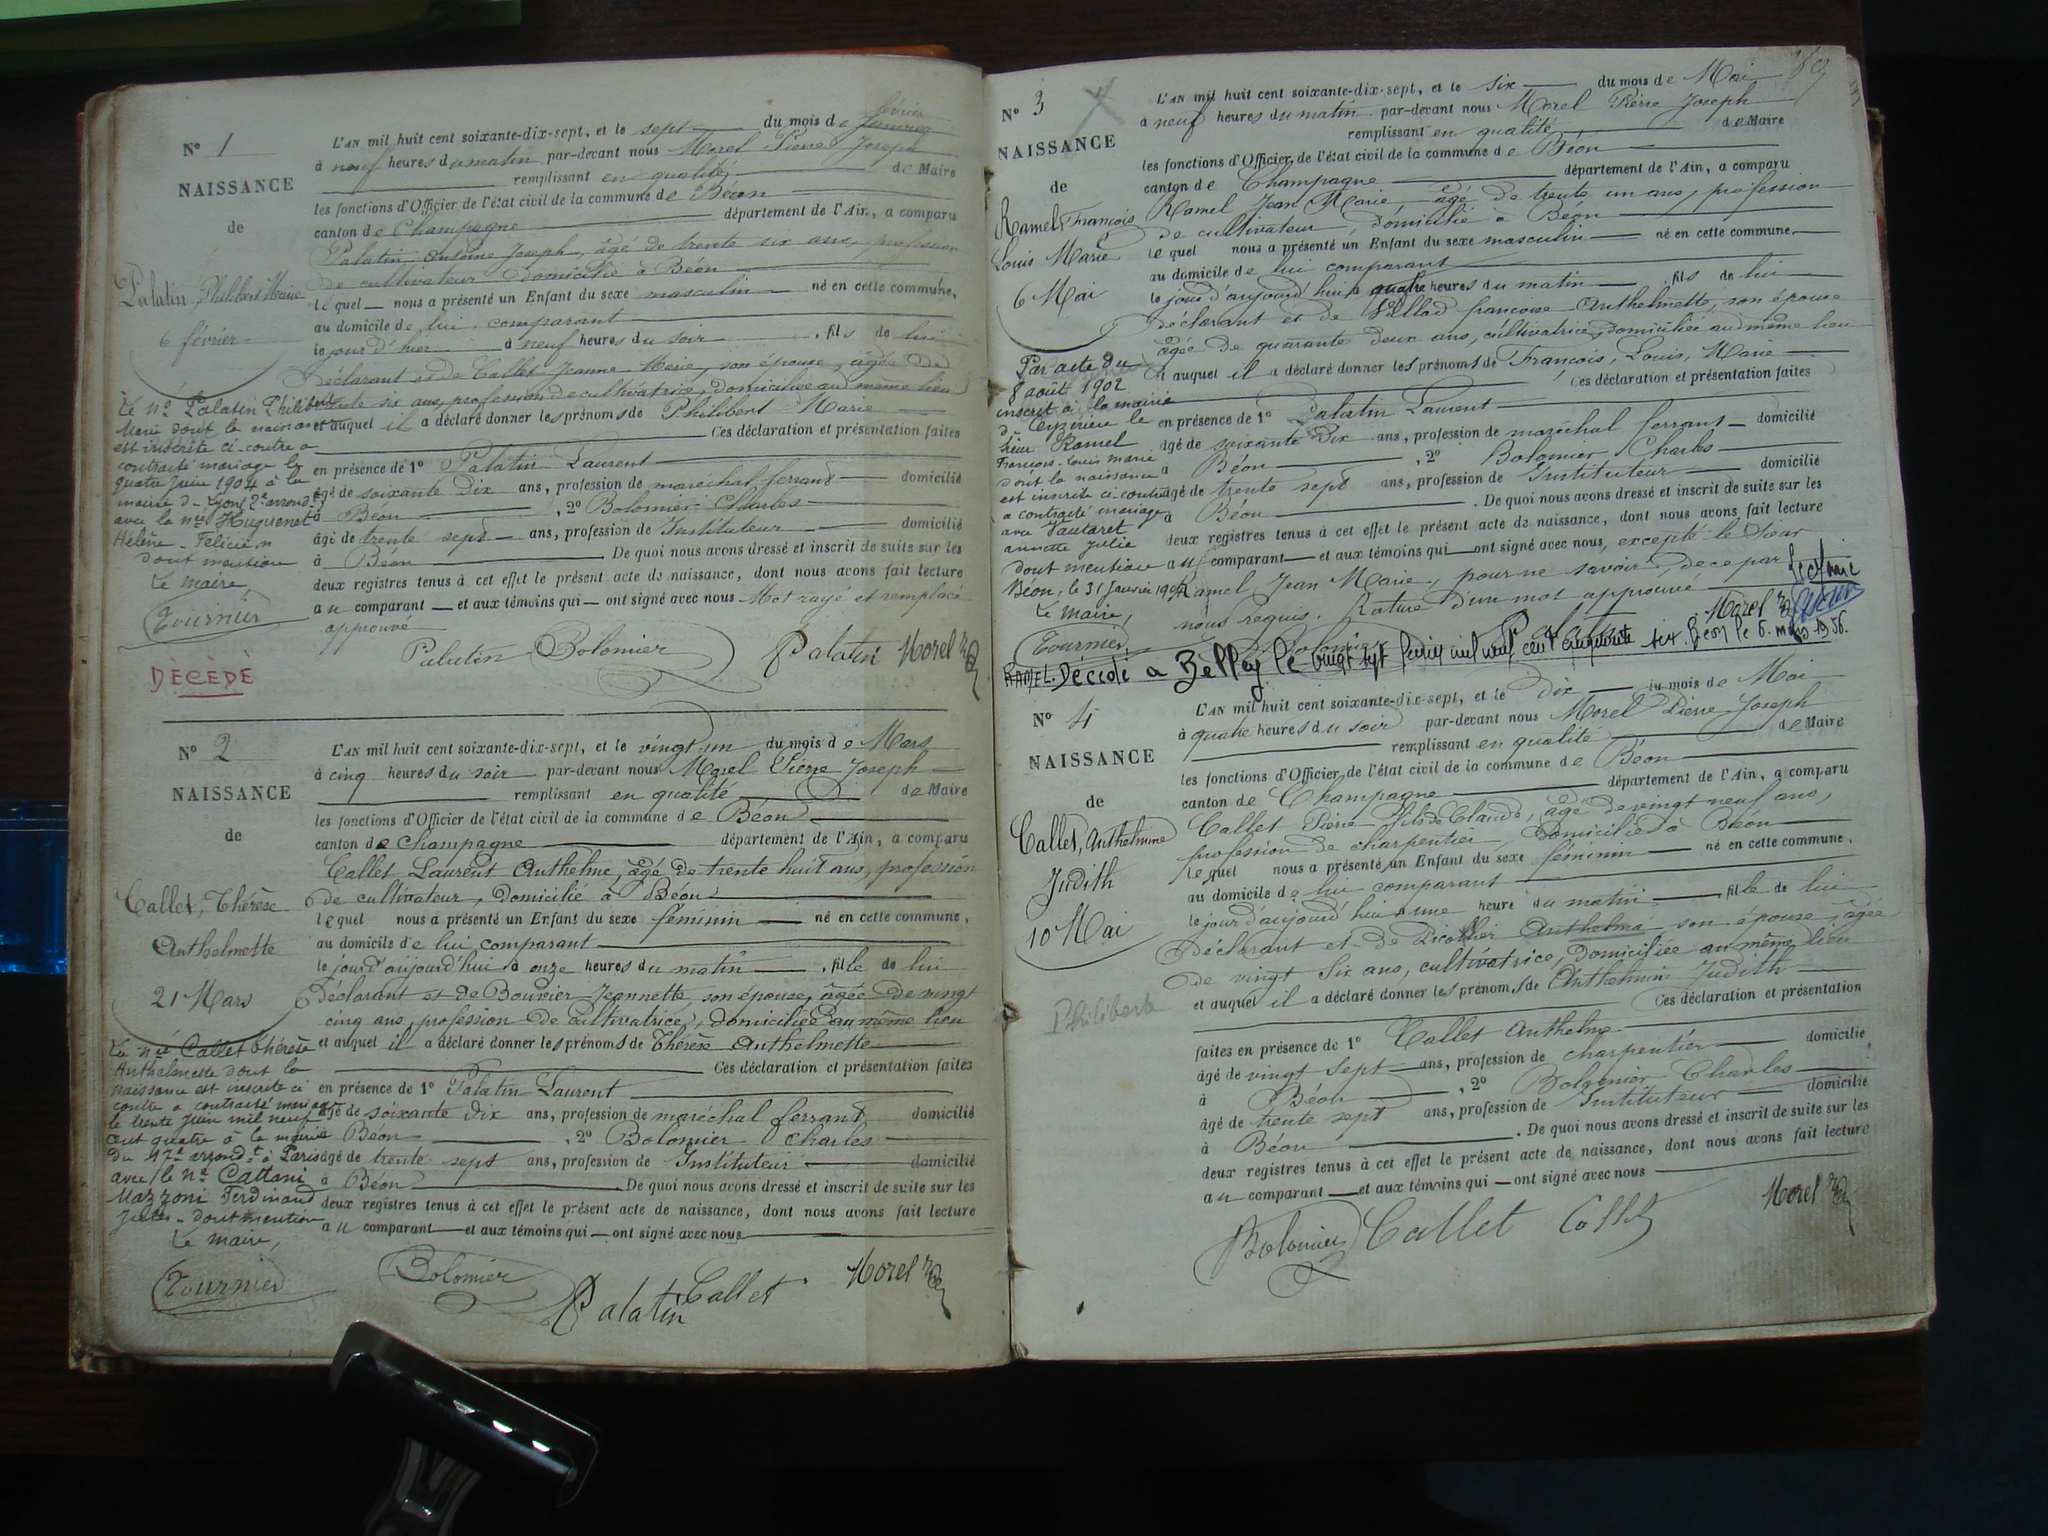 N° 1
NAISSANCE
de
Palatin, Philibert Marie
6 février
L'AN mil huit cent soixante-dix-sept, et le sept du mois de Janvier février
à neuf heures du matin par-devant nous Morel Pierre Joseph
remplissant en qualité de Maire
les fonctions d'Officier de l'état civil de la commune de Béon
canton de Champagne département de l'Ain, a comparu
Palatin Antoine Joseph, âgé de trente six ans, profession
de cultivateur domicilié à Béon
lequel nous a présenté un Enfant du sexe masculin né en cette commune,
au domicile de lui comparant
le jour d'hier à neuf heures du soir, fils de lui
Déclarant et de Callet Jeanne Marie, son épouse, âgée de
trente six ans, profession de cultivatrice, domiciliée au même lieu
et auquel il a déclaré donner les prénoms de Philibert Marie
Ces déclaration et présentation faites
en présence de 1° Palatin Laurent
âgé de soixante dix ans, profession de maréchal ferrant domicilié
à Béon, 2° Bolomier Charles
âgé de trente sept ans, profession de Instituteur domicilié
à Béon De quoi nous avons dressé et inscrit de suite sur les
deux registres tenus à cet effet le présent acte de naissance, dont nous avons fait lecture
au comparant et aux témoins qui ont signé avec nous Mot rayé et remplacé
approuvé
Palatin Bolomier Palatin Morel
Le né Palatin Philibert
Marie dont la naissance
est inscrite ci-contre a
contracté mariage le
quatre Juin 1904 à la
mairie de Lyon 2e arrondt
avec la née Huguenot
Hélène Felicie
dont mention
Le maire
Tournier
DÉCÉDÉ
N° 2
NAISSANCE
de
Callet, Thérèse
Anthelmette
21 Mars
L'AN mil huit cent soixante-dix-sept, et le vingt un du mois de Mars
à cinq heures du soir par-devant nous Morel Pierre Joseph
remplissant en qualité de Maire
les fonctions d'Officier de l'état civil de la commune de Béon
canton de Champagne département de l'Ain, a comparu
Callet Laurent Anthelme, âgé de trente huit ans, profession
de cultivateur, domicilié à Béon
lequel nous a présenté un Enfant du sexe féminin né en cette commune,
au domicile de lui comparant
le jour d'aujourd'hui à onze heures du matin, fille de lui
Déclarant et de Bouvier Jeannette, son épouse, âgée de vingt
cinq ans, profession de cultivatrice, domiciliée au même lieu
et auquel il a déclaré donner les prénoms de Thérèse Anthelmette
Ces déclaration et présentation faites
en présence de 1° Palatin Laurent
âgé de soixante dix ans, profession de maréchal ferrant domicilié
à Béon, 2° Bolomier Charles
âgé de trente sept ans, profession de Instituteur domicilié
à Béon De quoi nous avons dressé et inscrit de suite sur les
deux registres tenus à cet effet le présent acte de naissance, dont nous avons fait lecture
au comparant et aux témoins qui ont signé avec nous
Bolomier Palatin Callet Morel
La née Callet Thérèse
Anthelmette dont la
naissance est inscrite ci
contre a contracté mariage
le trente Juin mil neuf
cent quatre à la mairie
du 17e arrondt à Paris
avec le né Cattani
Mazzoni Ferdinand
Jules dont mention
Le maire,
Tournier
N° 3
NAISSANCE
de
Ramel, François
Louis Marie
6 Mai
L'AN mil huit cent soixante-dix-sept, et le six du mois de Mai
à neuf heures du matin par-devant nous Morel Pierre Joseph
remplissant en qualité de Maire
les fonctions d'Officier de l'état civil de la commune de Béon
canton de Champagne département de l'Ain, a comparu
Ramel Jean Marie, âgé de trente un ans, profession
de cultivateur, domicilié à Béon
lequel nous a présenté un Enfant du sexe masculin né en cette commune,
au domicile de lui comparant
le jour d'aujourd'hui à quatre heures du matin, fils de lui
déclarant et de françoise Anthelmette, son épouse
âgée de quarante deux ans, cultivatrice, domiciliée au même lieu
et auquel il a déclaré donner les prénoms de François, Louis, Marie
Ces déclaration et présentation faites
en présence de 1° Palatin Laurent domicilié
âgé de soixante dix ans, profession de maréchal ferrant
à Béon, 2° Bolomier Charles
âgé de trente sept ans, profession de Instituteur domicilié
à Béon. De quoi nous avons dressé et inscrit de suite sur les
deux registres tenus à cet effet le présent acte de naissance, dont nous avons fait lecture
au comparant et aux témoins qui ont signé avec nous, excepté le Sieur
Ramel Jean Marie, pour ne savoir, de ce par
nous requis. Rature d'un mot approuvé
Bolomier Morel
Par acte du
8 août 1902
inscrit à la mairie
le
sieur Ramel
François Louis Marie
dont la naissance
est inscrite ci-contre
a contracté mariage
avec Vautaret
annette Julie
dont mention
Béon, le 31 Janvier 1904
Le maire,
Tournier
RAMEL. Décédé à Belley le vingt sept février mil neuf cent cinquante six. Béon le 6. mars 1956.
N° 4
NAISSANCE
de
Callet, Anthelmine
Judith
10 Mai
Philiberte
L'AN mil huit cent soixante-dix-sept, et le dix du mois de Mai
à quatre heures du soir par-devant nous Morel Pierre Joseph
remplissant en qualité de Maire
les fonctions d'Officier de l'état civil de la commune de Béon
canton de Champagne département de l'Ain, a comparu
Callet Pierre fils de Claude, âgé de vingt neuf ans,
profession de charpentier, domicilié à Béon
lequel nous a présenté un Enfant du sexe féminin né en cette commune,
au domicile de lui comparant
le jour d'aujourd'hui à une heure du matin, fille de lui
Déclarant et de Anthelma son épouse, âgée
de vingt six ans, cultivatrice, domiciliée au même lieu
et auquel il a déclaré donner les prénoms de Anthelmine Judith
Ces déclaration et présentation
faites en présence de 1° Callet Anthelme
âgé de vingt sept ans, profession de charpentier domicilié
à Béon, 2° Bolomier Charles
âgé de trente sept ans, profession de Instituteur domicilié
à Béon. De quoi nous avons dressé et inscrit de suite sur les
deux registres tenus à cet effet le présent acte de naissance, dont nous avons fait lecture
au comparant et aux témoins qui ont signé avec nous
Bolomier Callet Callet Morel